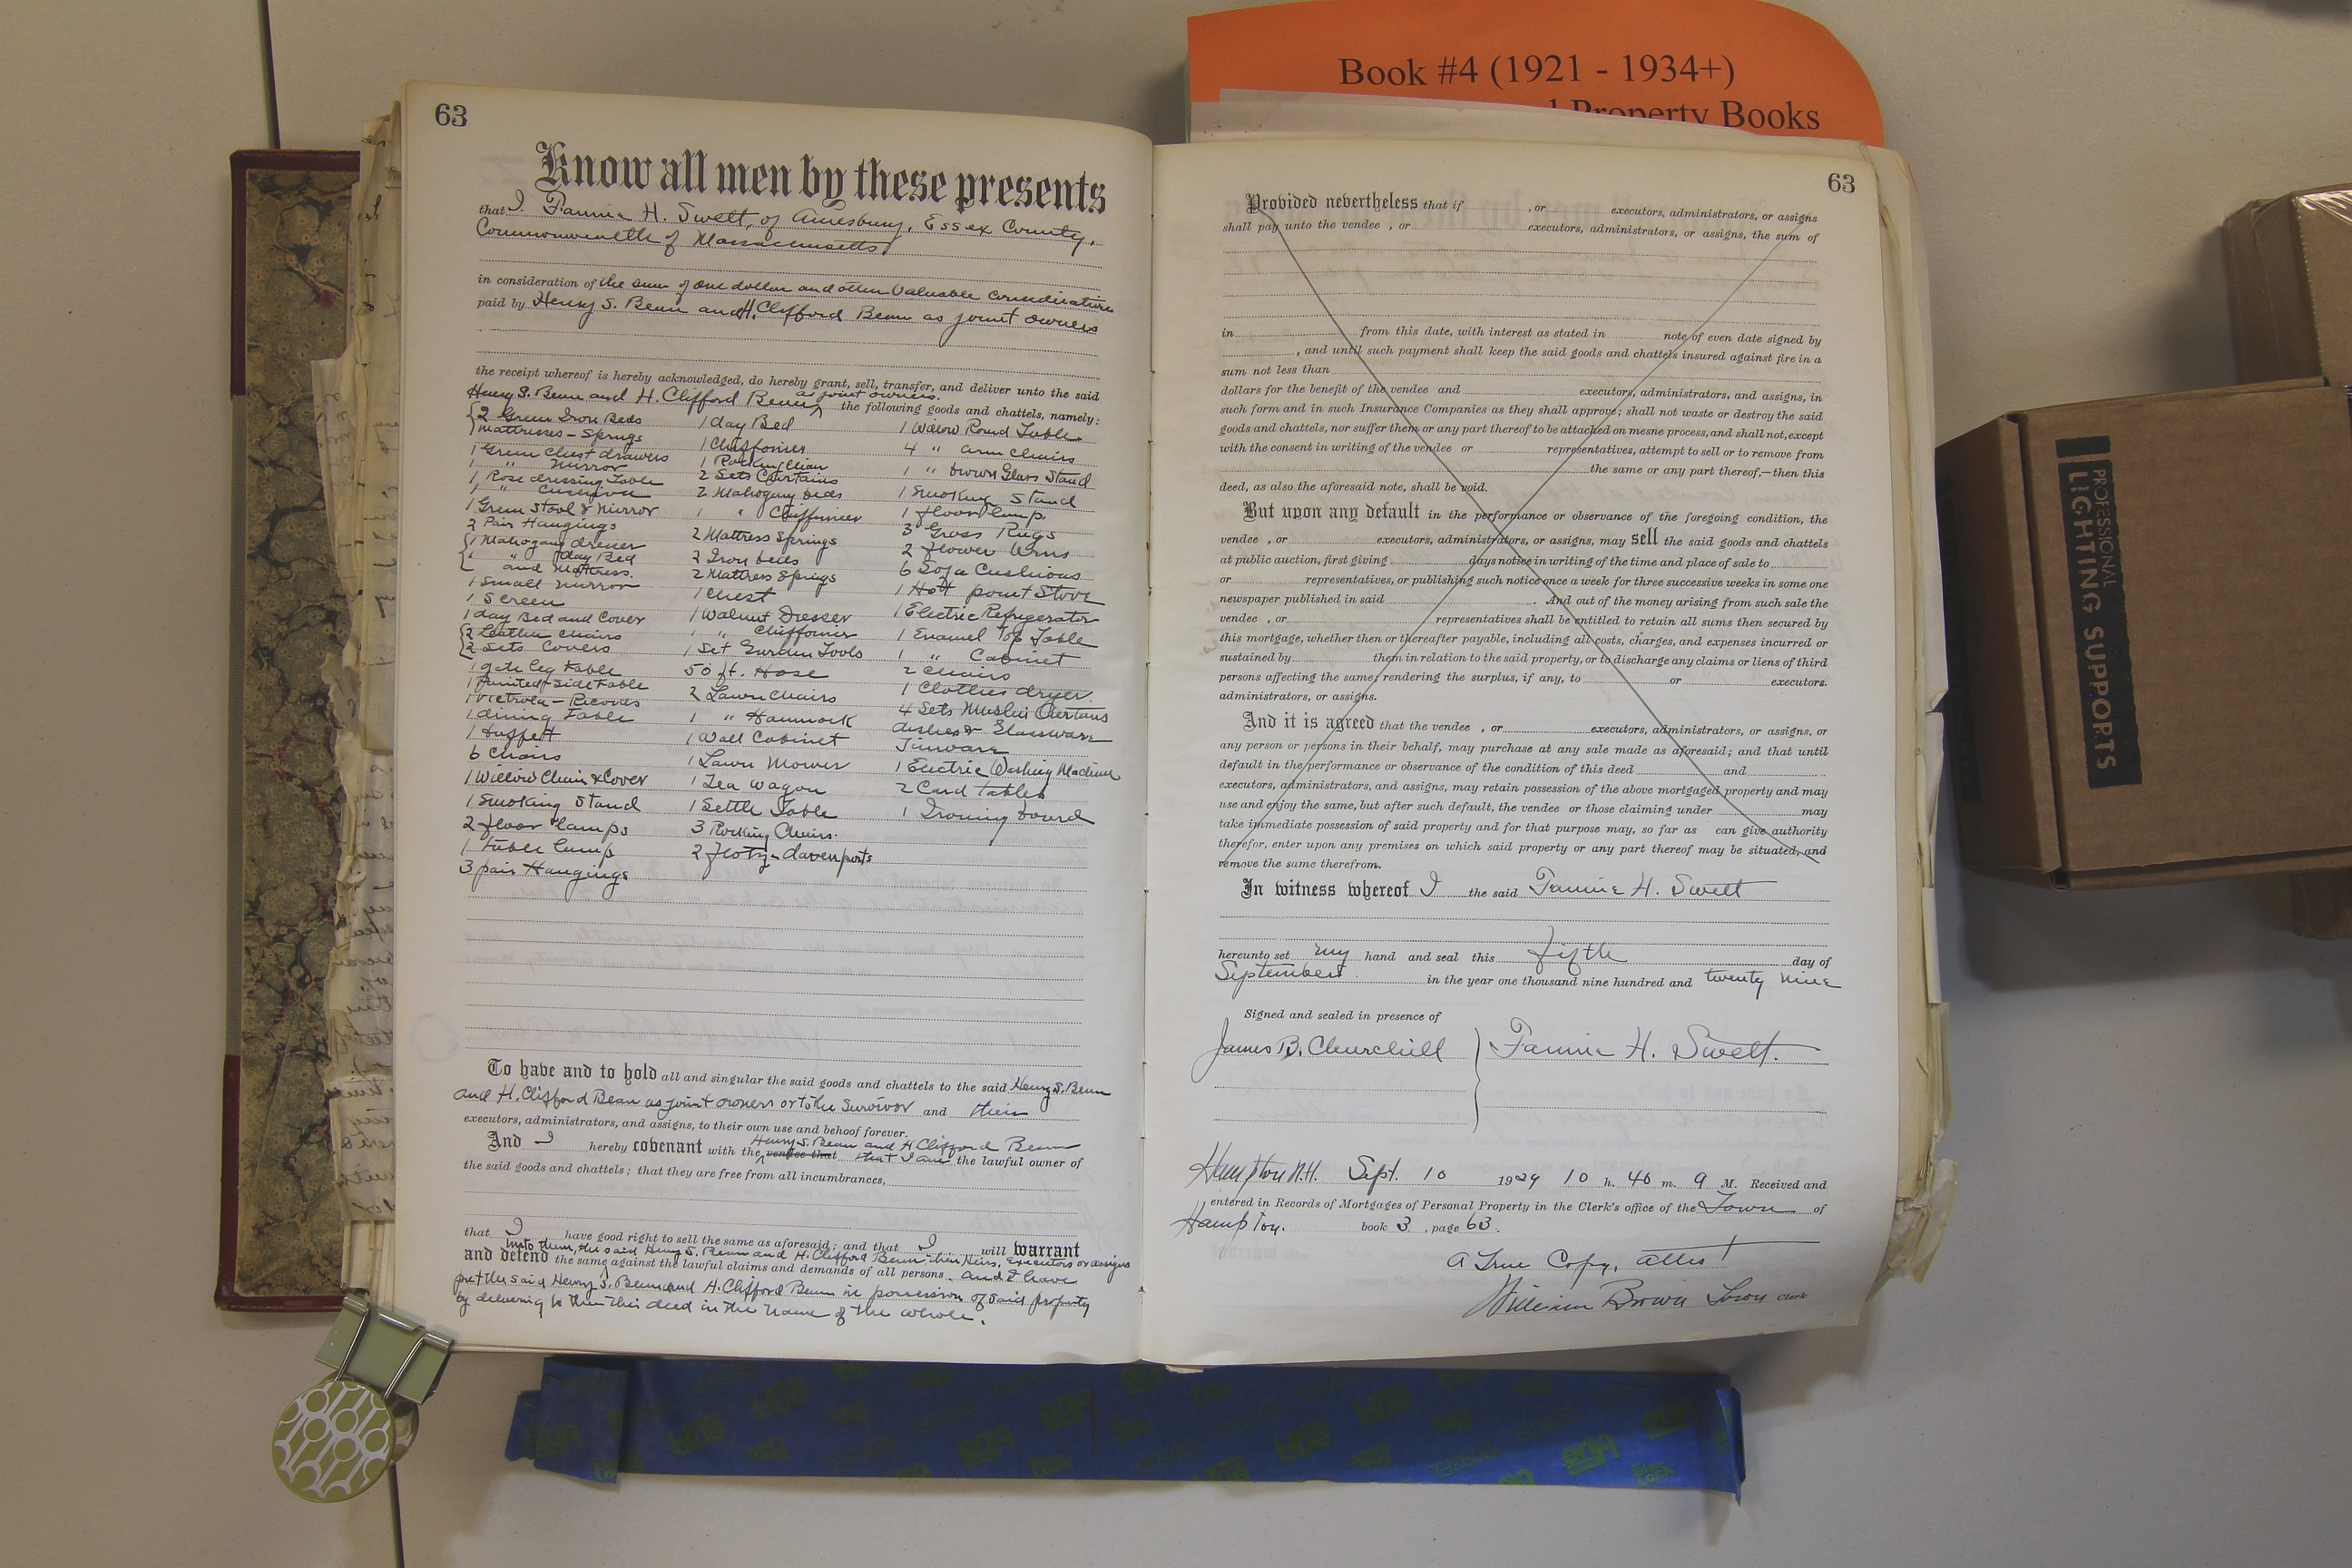 Book #4 (1921 - 1934+)
Property Books
63
Know all men by these presents
that I Fannie H. Swett, of Amesbury, Essex County,
Commonwealth of Massachusetts
in consideration of the sum of one dollar and other valuable considerations
paid by Henry S. Bean and H. Clifford Bean as joint owners
the receipt whereof is hereby acknowledged, do hereby grant, sell, transfer, and deliver unto the said
as joint owners.
Henry S. Bean and H. Clifford Bean the following goods and chattels, namely:
2 Green Iron Beds
mattresses - Springs
1 Green Chest drawers
1 " Mirror
1 Rose dressing Table
1 " Cushion
1 Green Stool & Mirror
2 Pair Hangings
1 Mahogany dresser
1 " day Bed
and Mattress.
1 Small Mirror
1 Screen
1 day Bed and Cover
2 Leather chairs
2 Sets Covers
1 gate leg table
1 Painted Side Table
1 Victrola - Records
1 dining Table
1 Buffett
6 Chairs
1 Willow Chair & Cover
1 Smoking Stand
2 floor lamps
1 table lamp
3 pair Hangings
1 day Bed
1 Chiffonier
1 Rocking Chair
2 Sets Curtains
2 Mahogany beds
1 " Chiffonier
2 Mattress Springs
2 Iron beds
2 Mattress Springs
1 Chest
1 Walnut Dresser
1 " Chiffonier
1 Set Garden Tools
50 ft. Hose
2 Lawn chairs
1 " Hammock
1 Wall Cabinet
1 Lawn Mower
1 Tea Wagon
1 Settle Table
3 Rocking Chairs.
2 davenports
1 Willow Round Table
4 " arm chairs
1 " Brown Glass Stand
1 Smoking Stand
1 floor lamp.
3 Grass Rugs
2 flower Urns
6 Sofa Cushions
1 Hot point Stove
1 Electric Refrigerator
1 Enamel Top Table
1 " Cabinet
2 Chairs
1 Clothes dryer
4 Sets Muslin Curtains
dishes & Glassware
Tinware
1 Electric Washing Machine
2 Card tables
1 Ironing board
To have and to hold all and singular the said goods and chattels to the said Henry S. Bean
and H. Clifford Bean as joint owners or to the Survivor and their
executors, administrators, and assigns, to their own use and behoof forever.
Henry S. Bean and H Clifford Bean
And I hereby covenant with the vendee that that I am the lawful owner of
the said goods and chattels; that they are free from all incumbrances,
that I have good right to sell the same as aforesaid; and that I will warrant
unto them, the said Henry S. Bean and H. Clifford Bean their Heirs, Executors or assigns
and defend the same against the lawful claims and demands of all persons. and I have
put the said Henry S. Bean and H. Clifford Bean in possession of said property
by delivering to them this deed in the name of the whole.
63
Provided nevertheless that if , or executors, administrators, or assigns
shall pay unto the vendee , or executors, administrators, or assigns, the sum of
in from this date, with interest as stated in note of even date signed by
, and until such payment shall keep the said goods and chattels insured against fire in a
sum not less than
dollars for the benefit of the vendee and executors, administrators, and assigns, in
such form and in such Insurance Companies as they shall approve; shall not waste or destroy the said
goods and chattels, nor suffer them or any part thereof to be attached on mesne process, and shall not, except
with the consent in writing of the vendee or representatives, attempt to sell or to remove from
the same or any part thereof,—then this
deed, as also the aforesaid note, shall be void.
But upon any default in the performance or observance of the foregoing condition, the
vendee , or executors, administrators, or assigns, may sell the said goods and chattels
at public auction, first giving days notice in writing of the time and place of sale to
or representatives, or publishing such notice once a week for three successive weeks in some one
newspaper published in said . And out of the money arising from such sale the
vendee , or representatives shall be entitled to retain all sums then secured by
this mortgage, whether then or thereafter payable, including all costs, charges, and expenses incurred or
sustained by them in relation to the said property, or to discharge any claims or liens of third
persons affecting the same; rendering the surplus, if any, to or executors.
administrators, or assigns.
And it is agreed that the vendee , or executors, administrators, or assigns, or
any person or persons in their behalf, may purchase at any sale made as aforesaid; and that until
default in the performance or observance of the condition of this deed and
executors, administrators, and assigns, may retain possession of the above mortgaged property and may
use and enjoy the same, but after such default, the vendee or those claiming under may
take immediate possession of said property and for that purpose may, so far as can give authority
therefor, enter upon any premises on which said property or any part thereof may be situated, and
remove the same therefrom.
In witness whereof I the said Fannie H. Swett
hereunto set my hand and seal this fifth day of
September in the year one thousand nine hundred and twenty nine
Signed and sealed in presence of
James B. Churchill Fannie H. Swett.
Hampton N.H. Sept. 10 1929 10 h. 40 m. 9 M. Received and
entered in Records of Mortgages of Personal Property in the Clerk's office of the Town of
Hampton. book 3 , page 63.
A True Copy, attest
William Brown Town Clerk
PROFESSIONAL
LIGHTING SUPPORTS